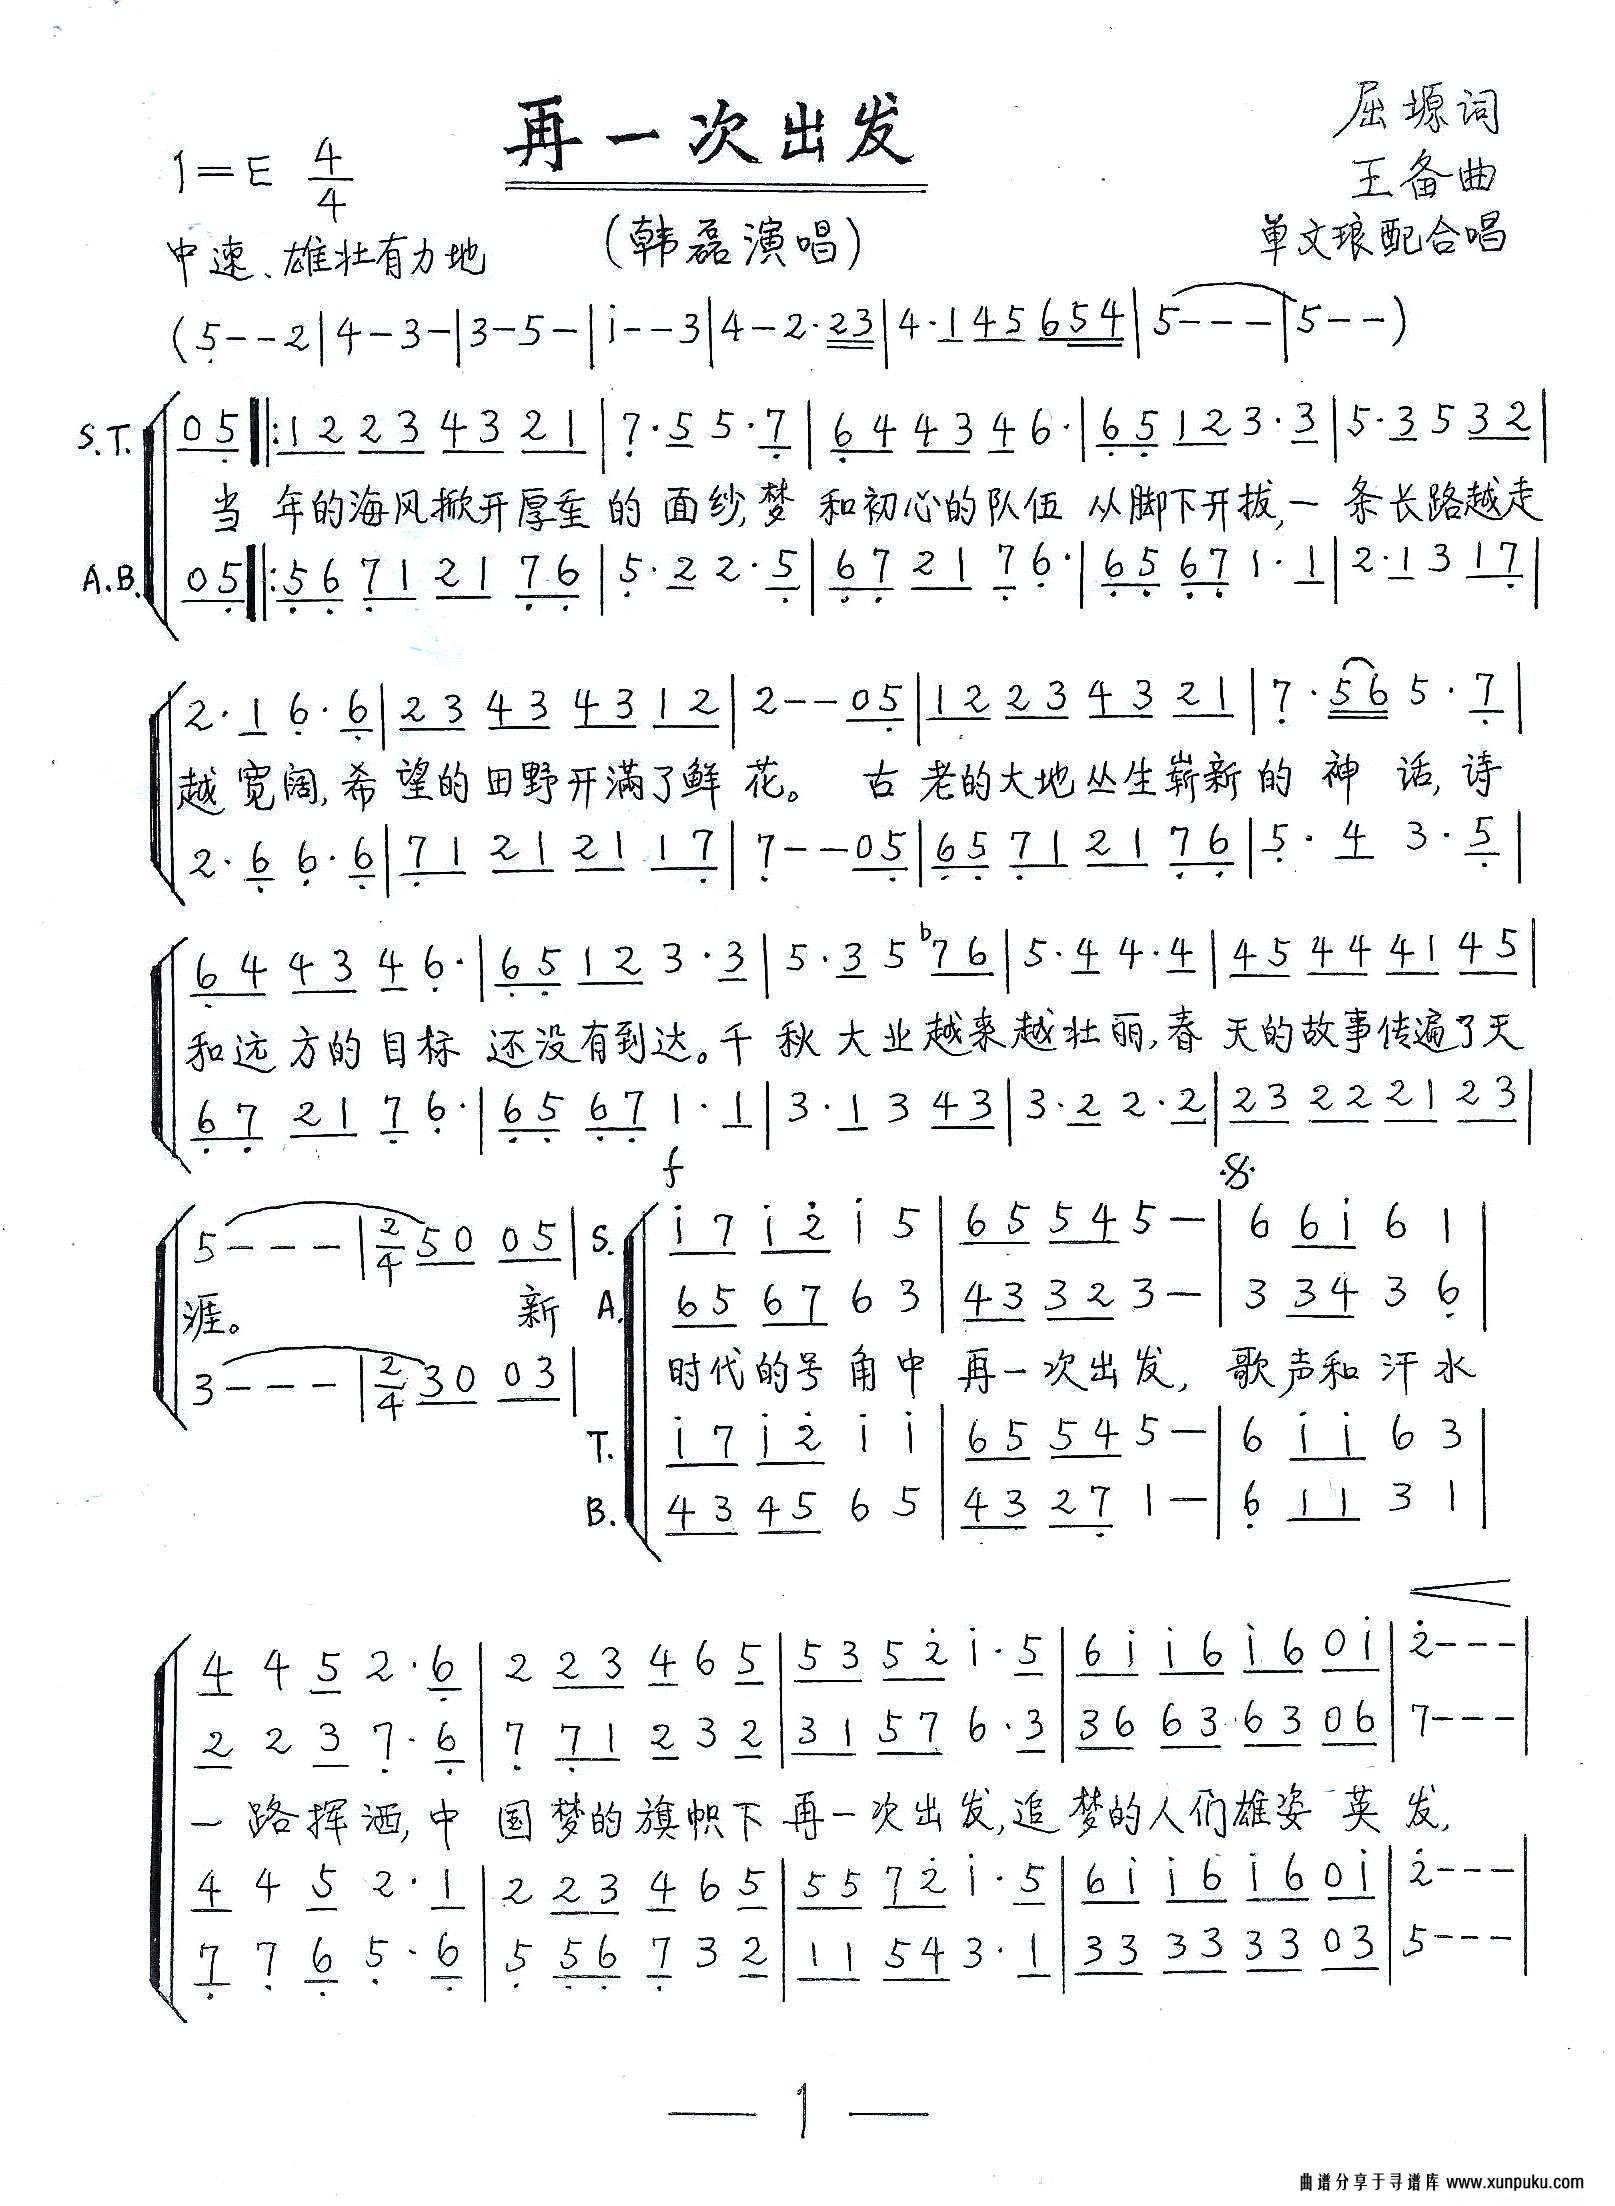 再一次出发
屈塬词
1=E 4/4
王备曲
中速、雄壮有力地
(韩磊演唱)
单文琅配合唱
(5--2|4-3-|3-5-|i--3|4-2·23|4·145654|5---|5--)
S.T. 05‖:12234321|7·55·7|644346·|65123·3|5·3532|
当年的海风掀开厚重的面纱,梦和初心的队伍从脚下开拔,一条长路越走
A.B. 05‖:56712176|5·22·5|672176·|65671·1|2·1317|
2·16·6|23434312|2--05|12234321|7·565·7|
越宽阔,希望的田野开满了鲜花。古老的大地丛生崭新的神话,诗
2·66·6|71212117|7--05|65712176|5·43·5|
644346·|65123·3|5·35♭76|5·44·4|45444145|
和远方的目标还没有到达。千秋大业越来越壮丽,春天的故事传遍了天
672176·|65671·1|3·1343|3·22·2|23222123|
f
5---|2/4 50 05|
涯。新
3---|2/4 30 03|
S. i7i2i5|65545-|66i61|
A. 656763|43323-|33436|
时代的号角中再一次出发,歌声和汗水
T. i7i2ii|65545-|6ii63|
B. 434565|43271-|61131|
4452·6|223465|5352i·5|6ii6i60i|2---|
2237·6|771232|31576·3|36636306|7---|
一路挥洒,中国梦的旗帜下再一次出发,追梦的人们雄姿英发,
4452·1|223465|5572i·5|6ii6i60i|2---|
7765·6|556732|11543·1|33333303|5---|
— 1 —
曲谱分享于寻谱库 www.xunpuku.com